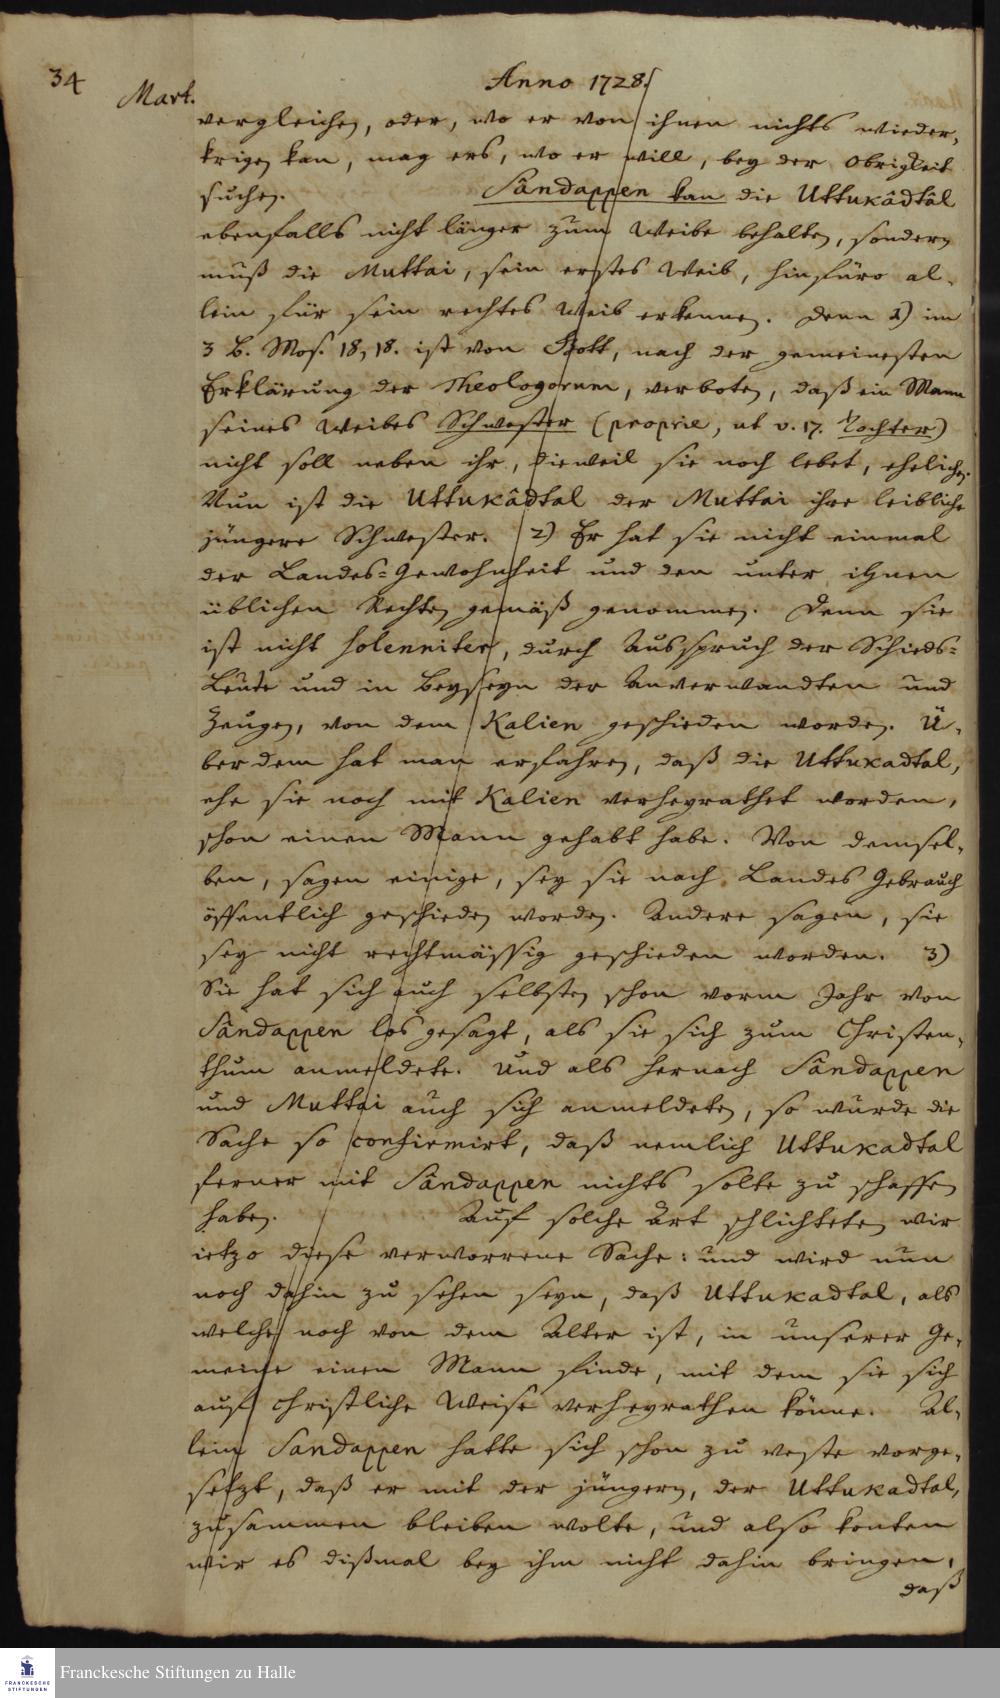 34
Anno 1728.
Mart.
vergleichen, oder, wo er von ihnen nichts wieder-
krigen kan, mag ers, wo er will, bey der Obrigkeit
suchen. Sândappen kan die Uttukâdtâl
ebenfalls nicht länger zum Weibe behalten, sondern
muß die Muttai, sein erstes Weib, hinfüro al-
lein für sein rechtes Weib erkennen. Denn 1) im
3 B. Mos. 18, 18. ist von Gott, nach der gemeinesten
Erklärung der Theologorum, verboten, daß ein Mann
seines Weibes Schwester (proprie, ut v. 17. Tochter)
nicht soll neben ihr, dieweil sie noch lebet, ehelichen.
Nun ist die Uttukâdtal der Muttai ihre leibliche
jüngere Schwester. 2) Er hat sie nicht einmal
der Landes-Gewohnheit und den unter ihnen
üblichen Rechten gemäß genommen. Denn sie
ist nicht solenniter, durch Ausspruch der Schieds-
Leute und in Beyseyn der Anverwandten und
Zeugen, von dem Kalien geschieden worden. Ü-
ber dem hat man erfahren, daß die Uttukadtal,
ehe sie noch mit Kalien verheyrathet worden,
schon einen Mann gehabt habe. Von demsel-
ben, sagen einige, sey sie nach Landes Gebrauch
öffentlich geschieden worden. Andere sagen, sie
sey nicht rechtmässig geschieden worden. 3)
Sie hat sich auch selbsten schon vorm Jahr von
Sândappen los gesagt, als sie sich zum Christen-
thum anmeldete. Und als hernach Sândappen
und Muttai auch sich anmeldeten, so wurde die
Sache so confirmirt, daß nemlich Uttukadtal
ferner mit Sândappen nichts solte zu schaffen
haben. Auf solche Art schlichteten wir
ietzo diese verworrene Sache: und wird nun
noch dahin zu sehen seyn, daß Uttukadtal, als
welche noch von dem Alter ist, in unserer Ge-
meine einen Mann finde, mit dem sie sich
auf christliche Weise verheyrathen könne. Al-
lein Sandappen hatte sich schon zu veste vorge-
setzt, daß er mit der jüngern, der Uttukadtal,
zusammen bleiben wolte, und also konten
wir es dißmal bey ihm nicht dahin bringen,
daß
FRANCKESCHE
STIFTUNGEN
Franckesche Stiftungen zu Halle